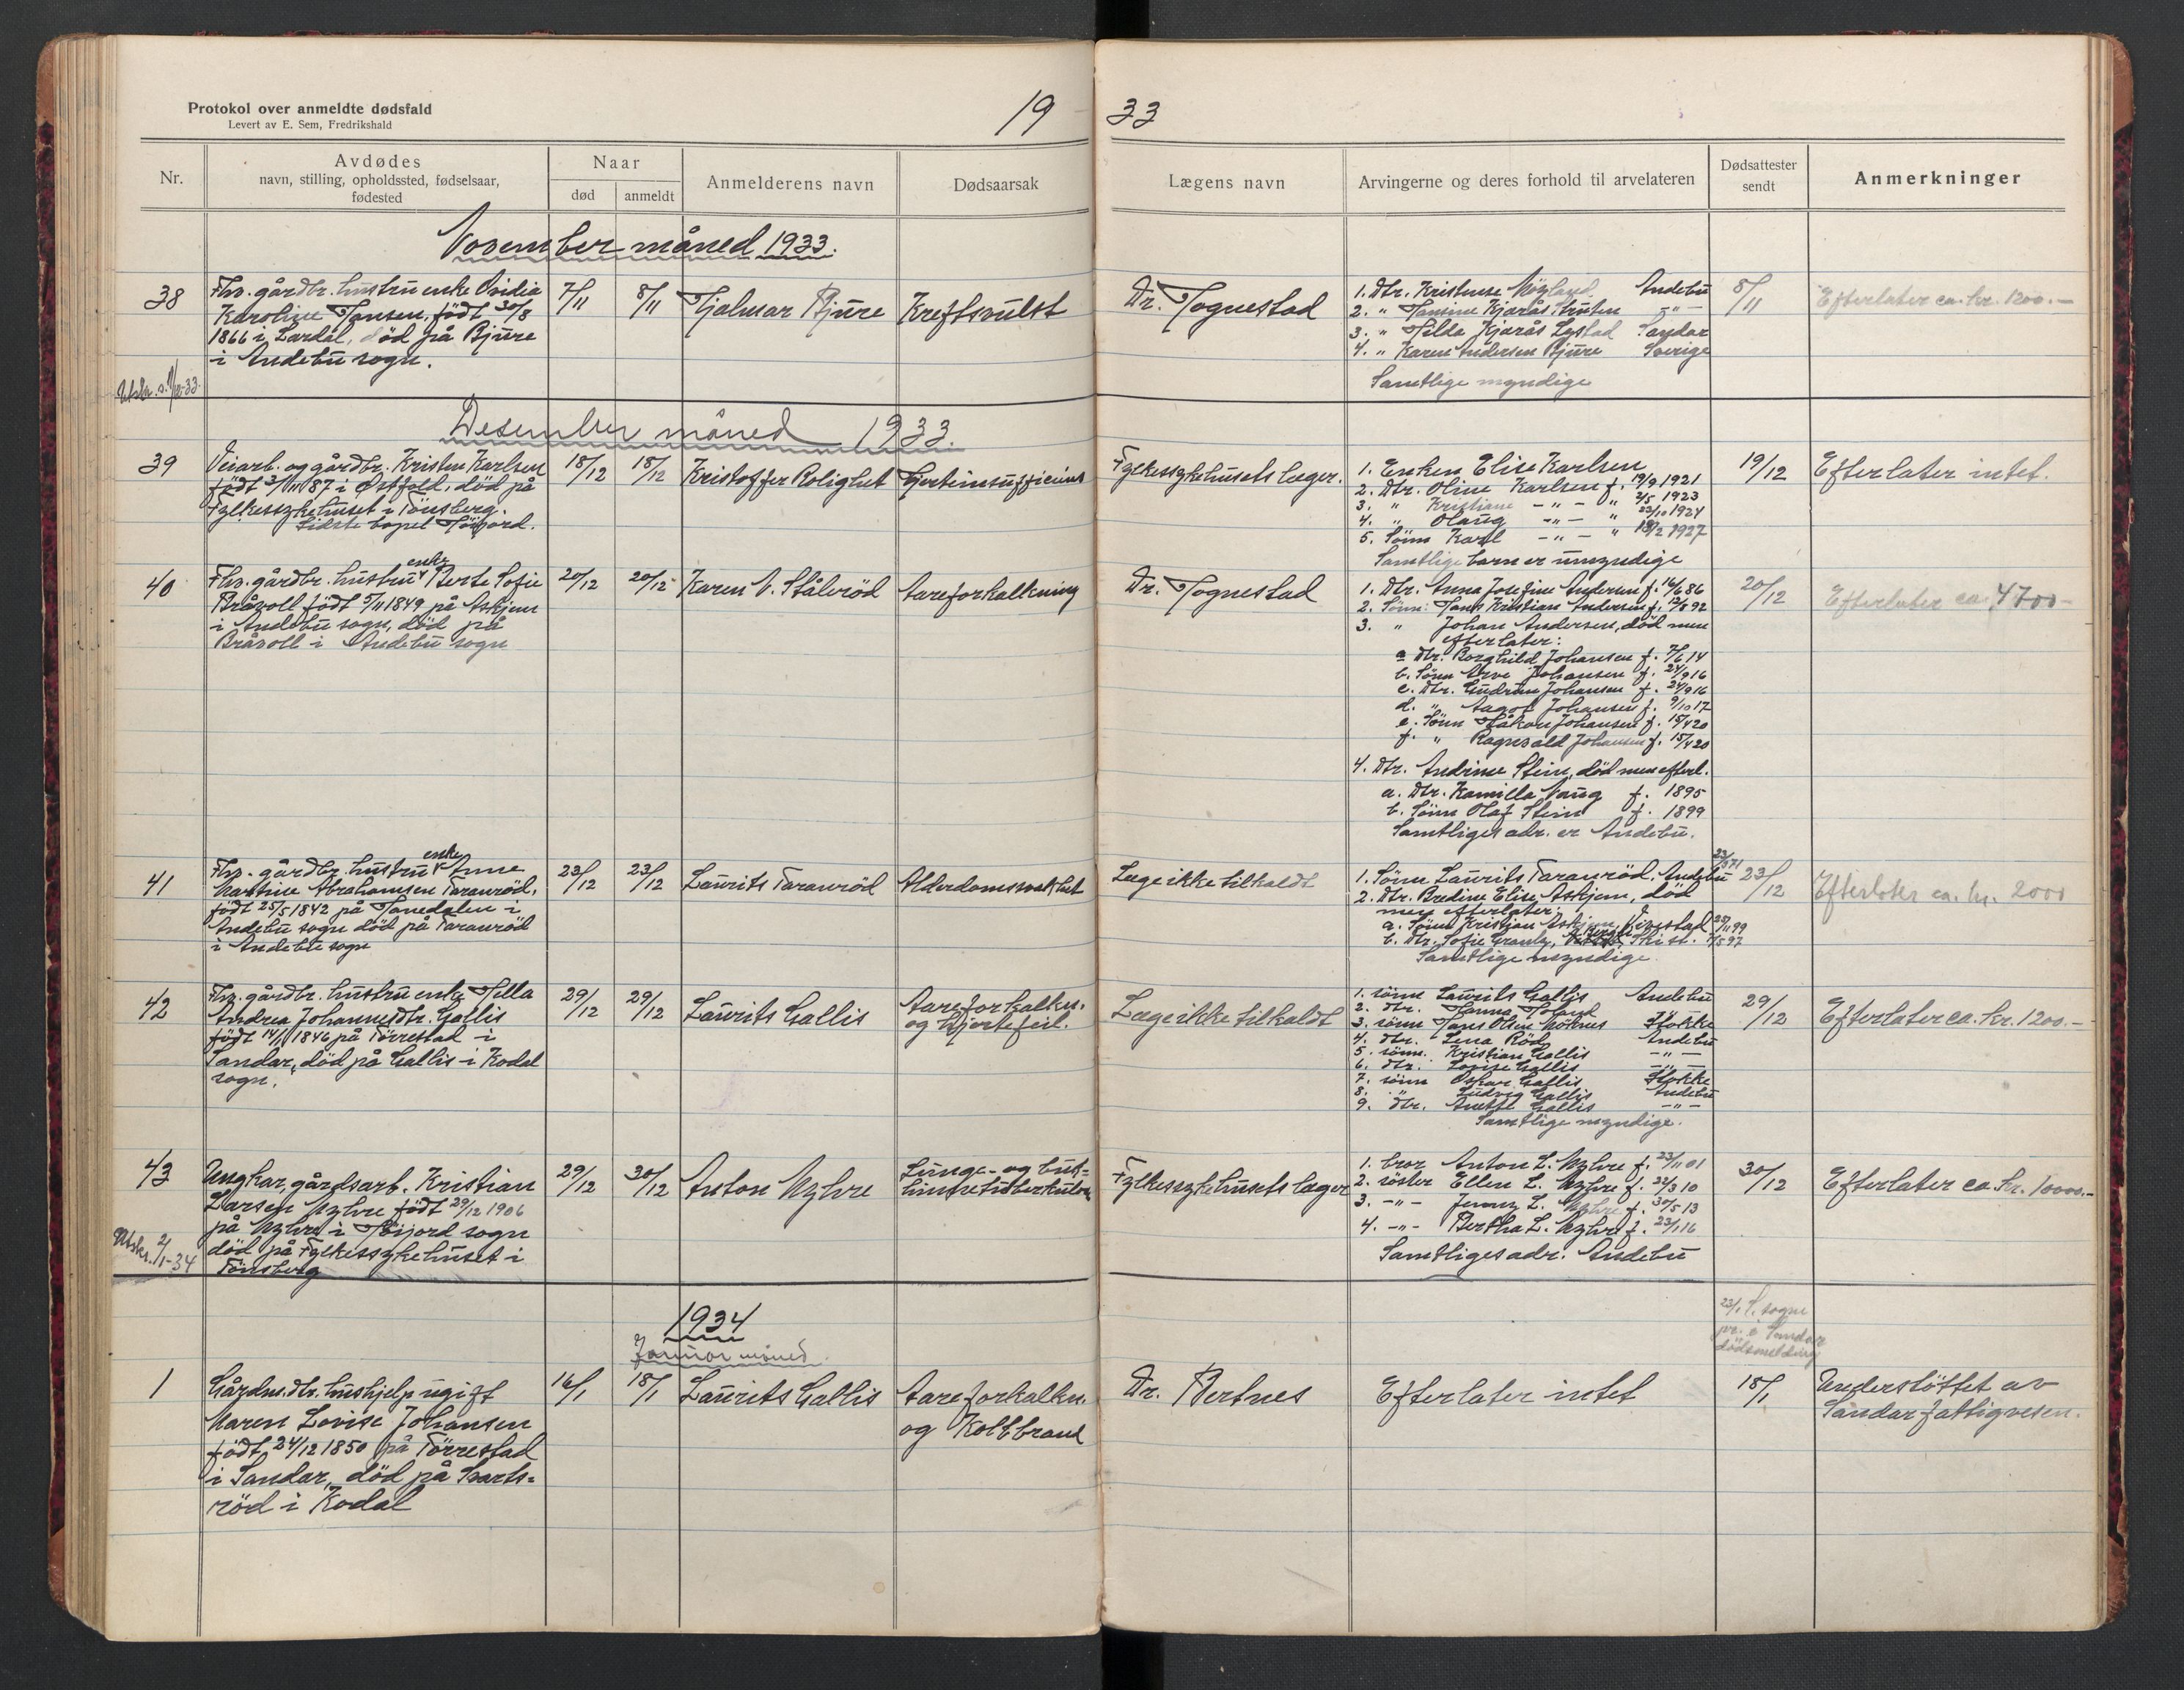 Protokol over anmeldte dødsfald
Levert av E. Sem, Fredrikshald
19 33
Nr.
Avdødes
navn, stilling, opholdssted, fødselsaar,
fødested
Naar
død
anmeldt
Anmelderens navn
Dødsaarsak
Lægens navn
Arvingerne og deres forhold til arvelateren
Dødsattester
sendt
Anmerkninger
November måned 1933.
38
Fhv. gårdbr. hustru enke
Karoline Hansen, født 30/8
1866 i Lardal, död på Bjüre
i Andebü sogn.
7/11
8/11
Hjalmar Bjüre
Kreftsvülst
Dr. Tognestad
1. Dtr. Kristense Andebü
2. " Kjærås -"-
3. " Hilda Kjærås Lystad Sandar
4. " Karen Andersen Bjüre Sverige
Samtlige myndige
8/11
Efterlater ca. kr. 1200.-
Utskr. s. 1/12-33.
Desember måned 1933.
39
Veiarb. og gårdbr. Kristen Karlsen
født 3/11 87 i Østfold, död på
Fylkessykehüset i Tönsberg.
Sidste bopel Höijord.
18/12
18/12
Kristoffer Rolighet
Hjerteinsufficiens
Fylkessykehusets læger.
1. Enken Elise Karlsen
2. Dtr. Oline Karlsen f. 19/9 1921
3. " Kristiane -"- " 2/5 1923
4. " Olaug -"- " 23/10 1924
5. Sönn Karl -"- " 18/2 1927
Samtlige barn er ümyndige
19/12
Efterlater intet.
40
enke
Fhv. gårdbr. hüstrü Berte Sofie
Bråvoll født 5/11 1849 på Askjem
i Andebü sogn, död på
Bråvoll i Andebü sogn
20/12
20/12
Karen V. Stålerød
Aareforkalkning
Dr. Tognestad
1. Dtr. Anna Josefine Andersen f. 16/6 86
2. Sönn: Hans Kristian Andersen f. 12/8 92
3. " Johan Andersen, död men
efterlater:
a. Dtr. Borghild Johansen f. 7/6 14
b. Sönn Arve Johansen f. 24/9 16
c. Dtr. Güdrün Johansen f. 24/9 16
d. " Aagot Johansen f. 9/10 17
e. Sönn Håkon Johansen f. 15/4 20
f. " Ragnvald Johansen f. 15/4 20
4. Dtr. Andrine Stein, död men efterl.
a. Dtr. Kamilla Vaug f. 1895
b. Sönn Olaf Stein f. 1899
Samtliges adr. er Andebü.
20/12
Efterlater ca. 4700-
41
enke
Fhv. gårdbr. hüstrü Anne
Martine Abrahamsen Taranröd,
født 25/5 1842 på Hanedalen i
Andebü sogn död på Taranröd
i Andebü sogn
23/12
23/12
Laurits Taranröd
Alderdomssvakhet
Læge ikke tilkaldt
1. Sönn Laurits Taranröd, Andebü
2. Dtr. Bredine Elise Askjem, död
men efterlater:
a. Sönn Kristjan Askjem, Virestad 25/11 99
b. Dtr. Sofie Granly, Skist. 7/5 97
Samtlige myndige.
23/12
Efterlater ca. kr. 2000
42
Fhv. gårdbr. hüstrü enke Hella
Andrea Johannesdtr. Gallis
født 14/1 1846 på Törrestad i
Sandar, död på Gallis i Kodal
sogn.
29/12
29/12
Laurits Gallis
Aareforkalkn.
og Hjertefeil.
Læge ikke tilkaldt
1. sönn Laurits Gallis Andebü
2. dtr. Hanna Toland -"-
3. sönn Hans Olsen Möknes Stokke
4. dtr. Lena Röd Andebü
5. sönn. Kristian Gallis -"-
6. dtr. Lovise Gallis -"-
7. sönn Oskar Gallis Stokke
8. " Ludvig Gallis Andebü
9. dtr. Anette Gallis -"-
Samtlige myndige.
29/12
Efterlater ca. kr. 1200.-
43
Ungkar, gårdsarb. Kristian
Larsen Myhre født 29/12 1906
på Myhre i Höijord sogn
död på Fylkessykehüset i
Tönsberg
29/12
30/12
Anton Myhre
Lunge- og
Fylkessykehusets læger
1. bror Anton L. Myhre f. 23/11 01
2. söster Ellen L. Myhre f. 22/3 10
3. -"- Jenny L. Myhre f. 30/5 13
4. -"- Bertha L. Myhre f. 23/1 16
Samtliges adr. Andebü
30/12
Efterlater ca. kr. 10000.-
Utskr. 2/1-34
1934
Januar måned.
23/1 S. sogne
pr. i Sandar
dödsmelding
1
Gårdm. dtr. hüshjelp ugift
Maren Lovise Johansen
født 24/12 1850 på Törrestad
i Sandar, död på Svarts-
röd i Kodal
16/1
18/1
Laurits Gallis
Aareforkalkn.
og Koldbrand
Dr. Bertnes
Efterlater intet
18/1
Understöttet av
Sandar fattigvesen.